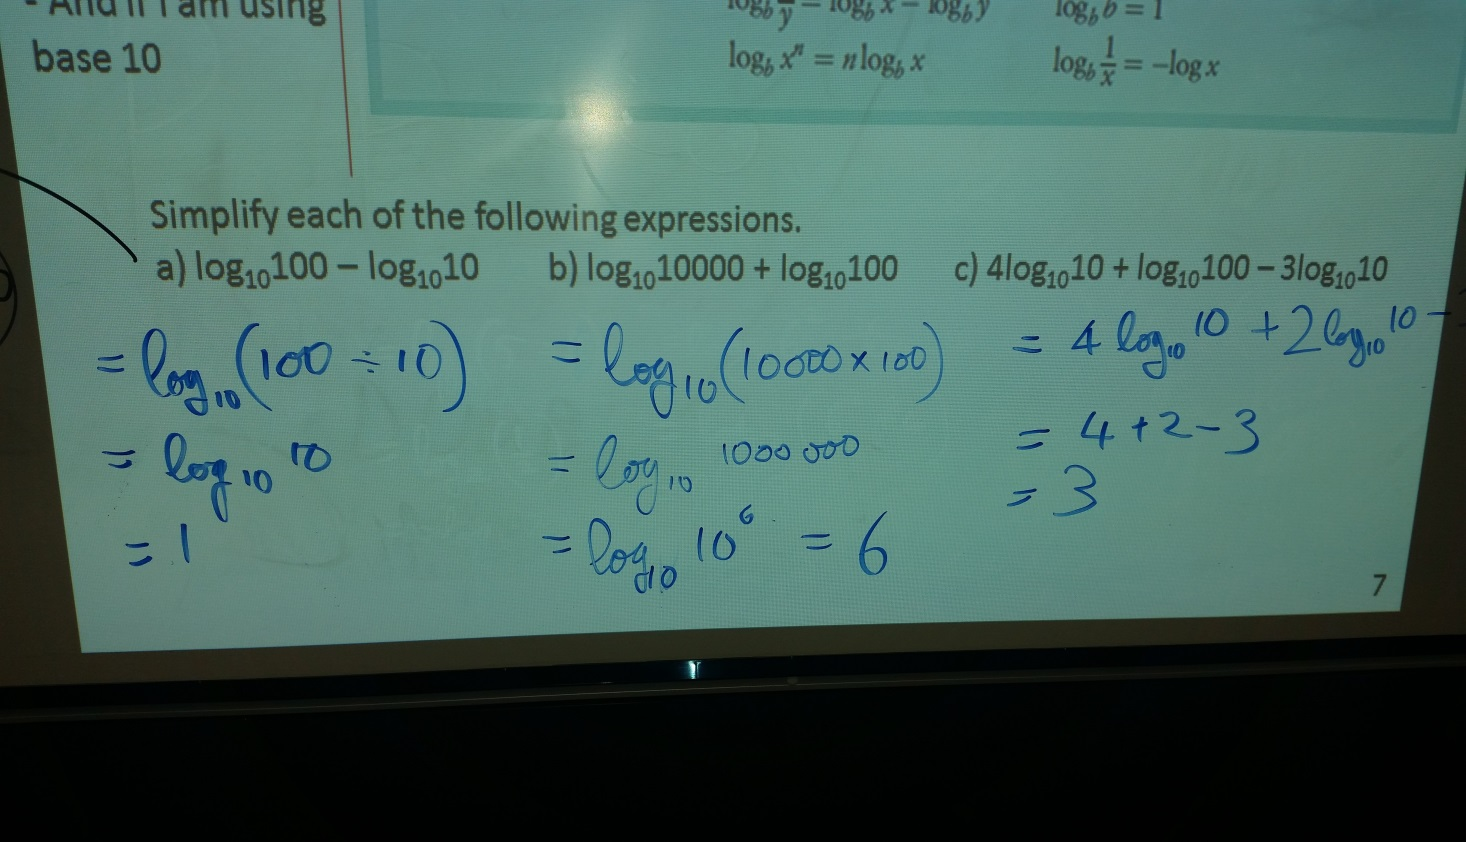 - And if I am using
base 10
log_b x/y = log_b x − log_b y
log_b b = 1
log_b xⁿ = n log_b x
log_b 1/x = −log x
Simplify each of the following expressions.
a) log₁₀100 – log₁₀10
b) log₁₀10000 + log₁₀100
c) 4log₁₀10 + log₁₀100 – 3log₁₀10
= log₁₀(100 ÷ 10)
= log₁₀ 10
= 1
= log₁₀(10000 × 100)
= log₁₀ 1000 000
= log₁₀ 10⁶ = 6
= 4 log₁₀ 10 + 2 log₁₀ 10 −
= 4 + 2 − 3
= 3
7